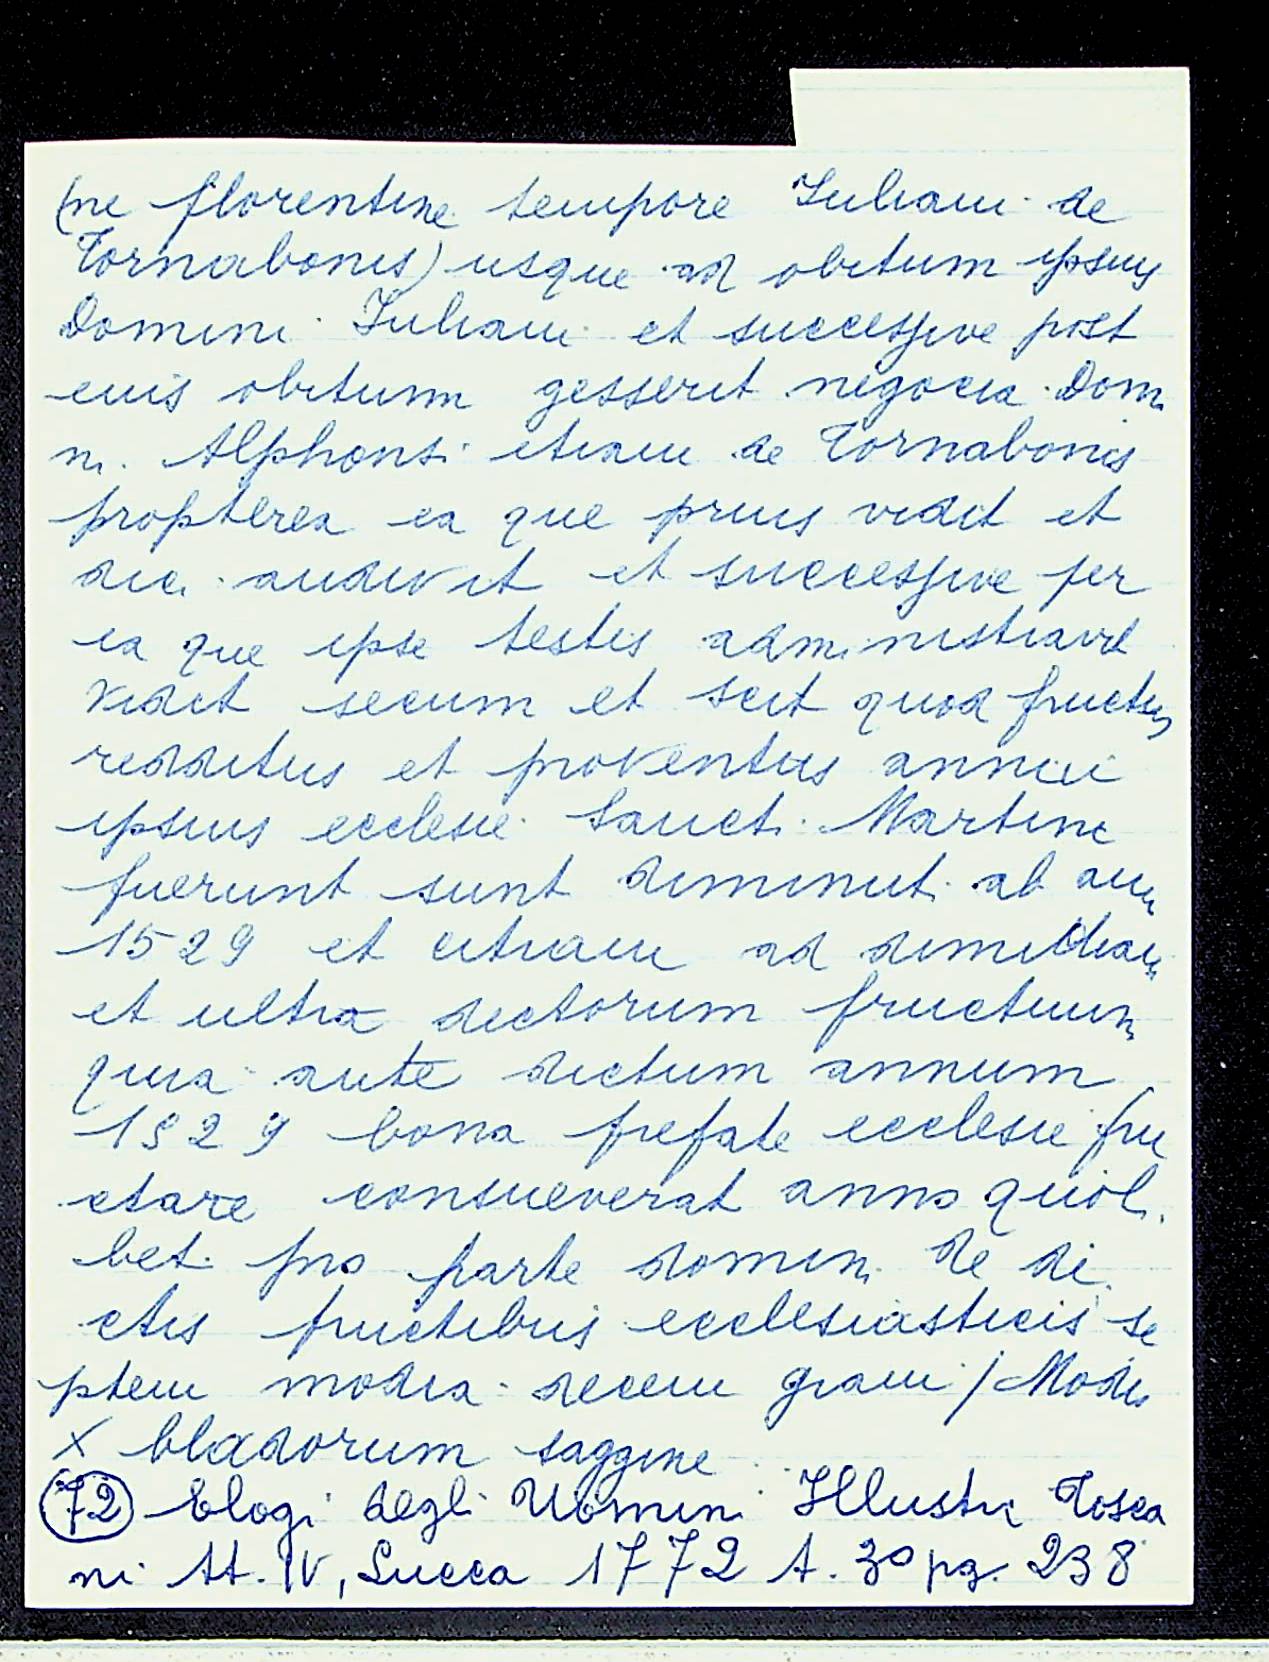 (ne florentine tempore Iuliani de
Tornabonis) usque ad obitum ipsius
Domini Iuliani et successive post
eius obitum gesserit negocia Dom
ni Alphonsi etiam de Tornabonis
propterea ea que prius vidit et
dici audivit et successive per
ea que ipse testis administravit
vidit secum et scit quod fructus
redditus et proventus annui
ipsius ecclesie Sancti Martini
fuerunt sunt diminuti ab anno
1529 et citriam ad dimidiam
et ultra dictorum fructuum
quia ante dictum annum
1529 bona prefate ecclesie fru
ctare consueverat anno quoli
bet pro parte domini de di
ctis fructibus ecclesiasticis se
ptem modia decem grani / Modii
X bladorum saggine
(72) Elogi degli Uomini Illustri Tosca
ni tt. IV, Lucca 1772 t. 3º pg. 238